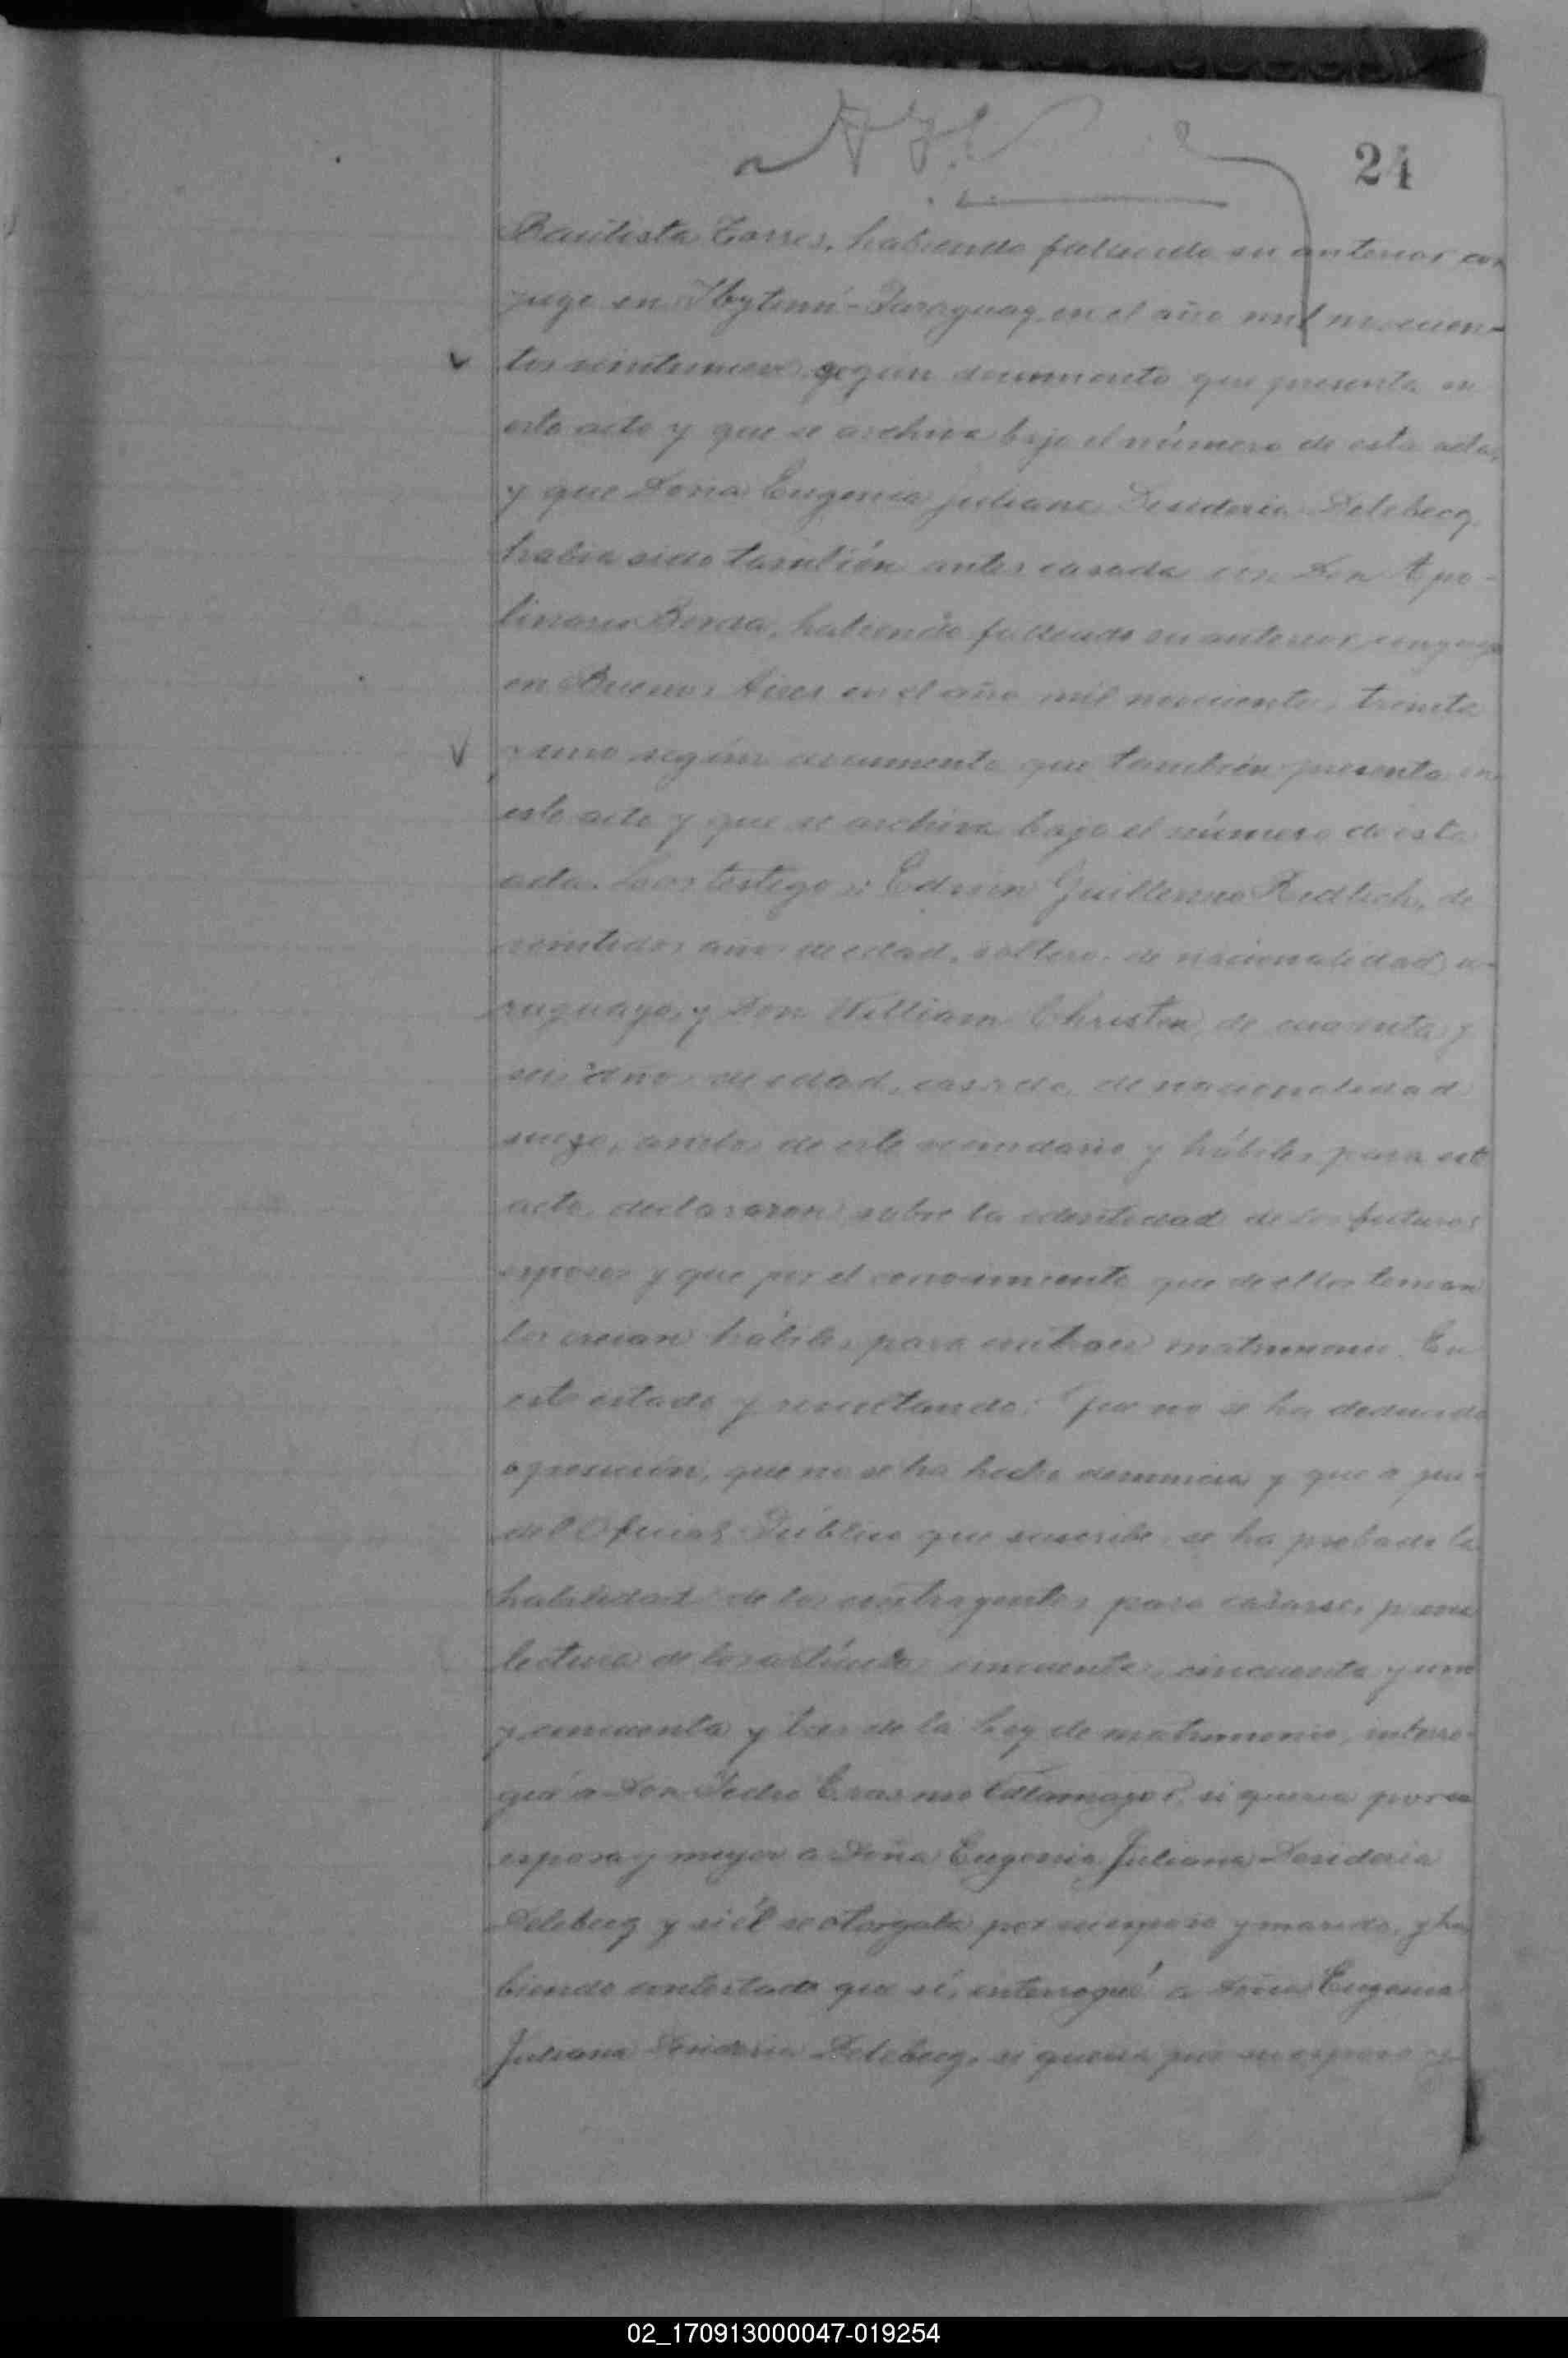 24
Bautista Torres, habiendo fallecido su anterior con
yuge en Ybytimí-Paraguay en el año mil novecien-
tos veintinueve segun documento que presenta en
este acto y que se archiva bajo el número de esta acta,
y que Doña Eugenia Juliana Desideria Delebecq
habia sido también antes casada con Don Apo-
linario Borda, habiendo fallecido su anterior conyuge
en Buenos Aires en el año mil novecientos treinta
y uno según documento que también presenta en
este acto y que se archiva bajo el número de esta
acta. Los testigos: Edwin Guillermo Redlich, de
veintidos años de edad, soltero, de nacionalidad u-
ruguayo, y Don William Christen, de cuarenta y
seis años de edad, casado, de nacionalidad
suizo, ambos de este vecindario y hábiles para este
acto, declararon sobre la identidad de los futuros
esposos y que por el conocimiento que de ellos tenian
los creian hábiles para contraer matrimonio. En
este estado y resultando: Que no se ha deducido
oposición, que no se ha hecho denuncia y que a jui-
del Oficial Público que suscribe, se ha probado la
habilidad de los contrayentes para casarse, previa
lectura de los artículos cincuenta, cincuenta y uno
y cincuenta y tres de la Ley de matrimonio, interro-
gué a Don Pedro Erasmo Villamayor, si queria por su
esposa y mujer a Doña Eugenia Juliana Desideria
Delebecq y si él se otorgaba por su esposo y marido, y ha
biendo contestado que sí, interrogué a Doña Eugenia
Juliana Desideria Delebecq, si queria por su esposo y
02_170913000047-019254